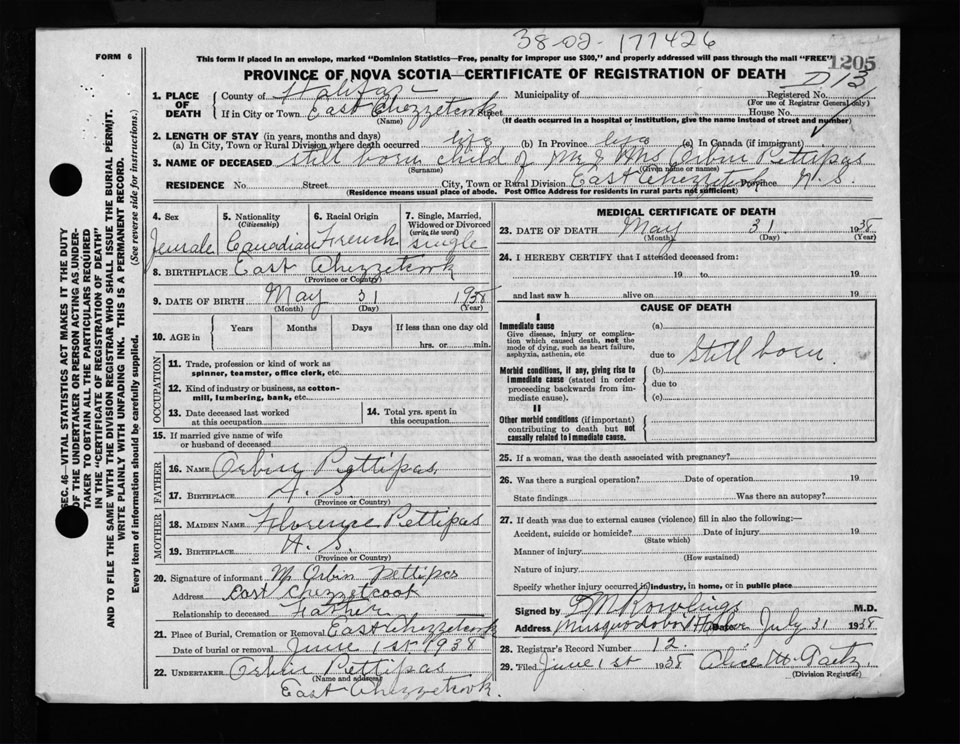 38-02-177426
FORM 6
This form if placed in an envelope, marked "Dominion Statistics—Free, penalty for improper use $300," and properly addressed will pass through the mail "FREE"
1205
PROVINCE OF NOVA SCOTIA—CERTIFICATE OF REGISTRATION OF DEATH
1. PLACE OF DEATH
County of Halifax Municipality of Registered No. D13
(For use of Registrar General only)
If in City or Town East Chezzetcook Street House No.
(Name) (If death occurred in a hospital or institution, give the name instead of street and number)
2. LENGTH OF STAY (in years, months and days)
(a) In City, Town or Rural Division where death occurred (b) In Province (c) In Canada (if immigrant)
3. NAME OF DECEASED still born child of Mr & Mrs Orbin Pettipas
(Surname) (Given name or names)
RESIDENCE No. Street City, Town or Rural Division East Chezzetcook Province N. S.
(Residence means usual place of abode. Post Office Address for residents in rural parts not sufficient)
4. Sex
female
5. Nationality
(Citizenship)
Canadian
6. Racial Origin
French
7. Single, Married, Widowed or Divorced
(write the word)
single
8. BIRTHPLACE East Chezzetcook
(Province or Country)
9. DATE OF BIRTH May 31 1938
(Month) (Day) (Year)
10. AGE in
Years Months Days If less than one day old
hrs. or min.
OCCUPATION
11. Trade, profession or kind of work as
spinner, teamster, office clerk, etc.
12. Kind of industry or business, as cotton-
mill, lumbering, bank, etc.
13. Date deceased last worked
at this occupation
14. Total yrs. spent in
this occupation
15. If married give name of wife
or husband of deceased
FATHER
16. NAME Orbin Pettipas
17. BIRTHPLACE N. S.
(Province or Country)
MOTHER
18. MAIDEN NAME Florence Pettipas
19. BIRTHPLACE N. S.
(Province or Country)
20. Signature of informant Mr Orbin Pettipas
Address East Chezzetcook
Relationship to deceased Father
21. Place of Burial, Cremation or Removal East Chezzetcook
Date of burial or removal June 1st 1938
22. UNDERTAKER Orbin Pettipas
(Name and address)
East Chezzetcook.
MEDICAL CERTIFICATE OF DEATH
23. DATE OF DEATH May 31 1938
(Month) (Day) (Year)
24. I HEREBY CERTIFY that I attended deceased from:
19 to 19
and last saw h alive on 19
CAUSE OF DEATH
I
Immediate cause
Give disease, injury or complica-
tion which caused death, not the
mode of dying, such as heart failure,
asphyxia, asthenia, etc
(a)
due to Still born
Morbid conditions, if any, giving rise to
immediate cause (stated in order
proceeding backwards from im-
mediate cause)
(b)
due to
(c)
II
Other morbid conditions (if important)
contributing to death but not
causally related to immediate cause.
25. If a woman, was the death associated with pregnancy?
26. Was there a surgical operation? Date of operation 19
State findings Was there an autopsy?
27. If death was due to external causes (violence) fill in also the following:—
Accident, suicide or homicide? Date of injury 19
(State which)
Manner of injury
(How sustained)
Nature of injury
Specify whether injury occurred in industry, in home, or in public place
Signed by Rowlings M.D.
Address Musquodoboit Harbor Date July 31 1938
28. Registrar's Record Number 12
29. Filed June 1st 1938 Alice M.
(Division Registrar)
SEC. 46—VITAL STATISTICS ACT MAKES IT THE DUTY
OF THE UNDERTAKER OR PERSON ACTING AS UNDER-
TAKER TO OBTAIN ALL THE PARTICULARS REQUIRED
IN THE "CERTIFICATE OF REGISTRATION OF DEATH"
AND TO FILE THE SAME WITH THE DIVISION REGISTRAR WHO SHALL ISSUE THE BURIAL PERMIT.
WRITE PLAINLY WITH UNFADING INK. THIS IS A PERMANENT RECORD.
Every item of information should be carefully supplied. (See reverse side for instructions.)